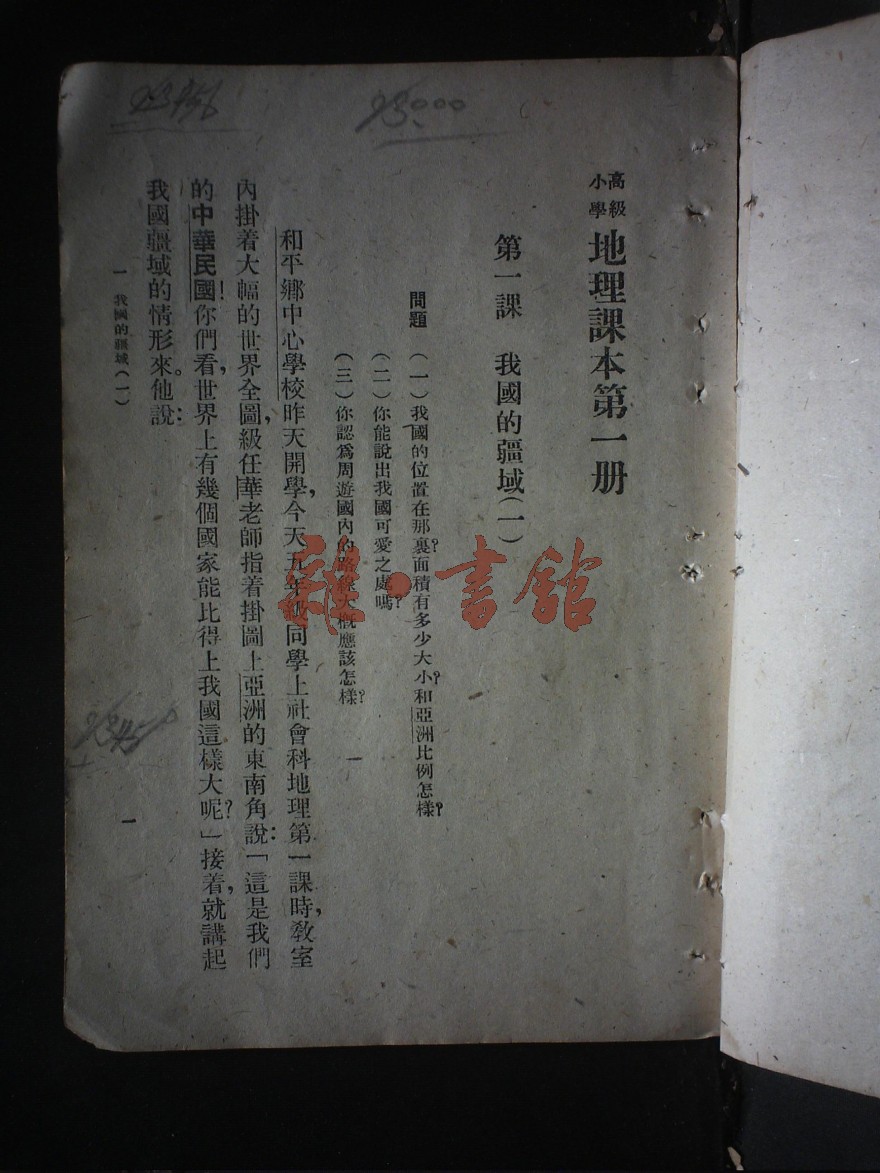 高級小學 地理課本第一册
第一課 我國的疆域(一)
問題 (一)我國的位置在那裏?面積有多少大小?和亞洲比例怎樣?
(二)你能說出我國可愛之處嗎?
(三)你認爲周遊國內的路線大概應該怎樣?
和平鄉中心學校昨天開學,今天五年級同學上社會科地理第一課時,教室
內掛着大幅的世界全圖,級任華老師指着掛圖上亞洲的東南角說:「這是我們
的中華民國!你們看,世界上有幾個國家能比得上我國這樣大呢?」接着,就講起
我國疆域的情形來。他說:
一 我國的疆域(一)
一
雜·書館